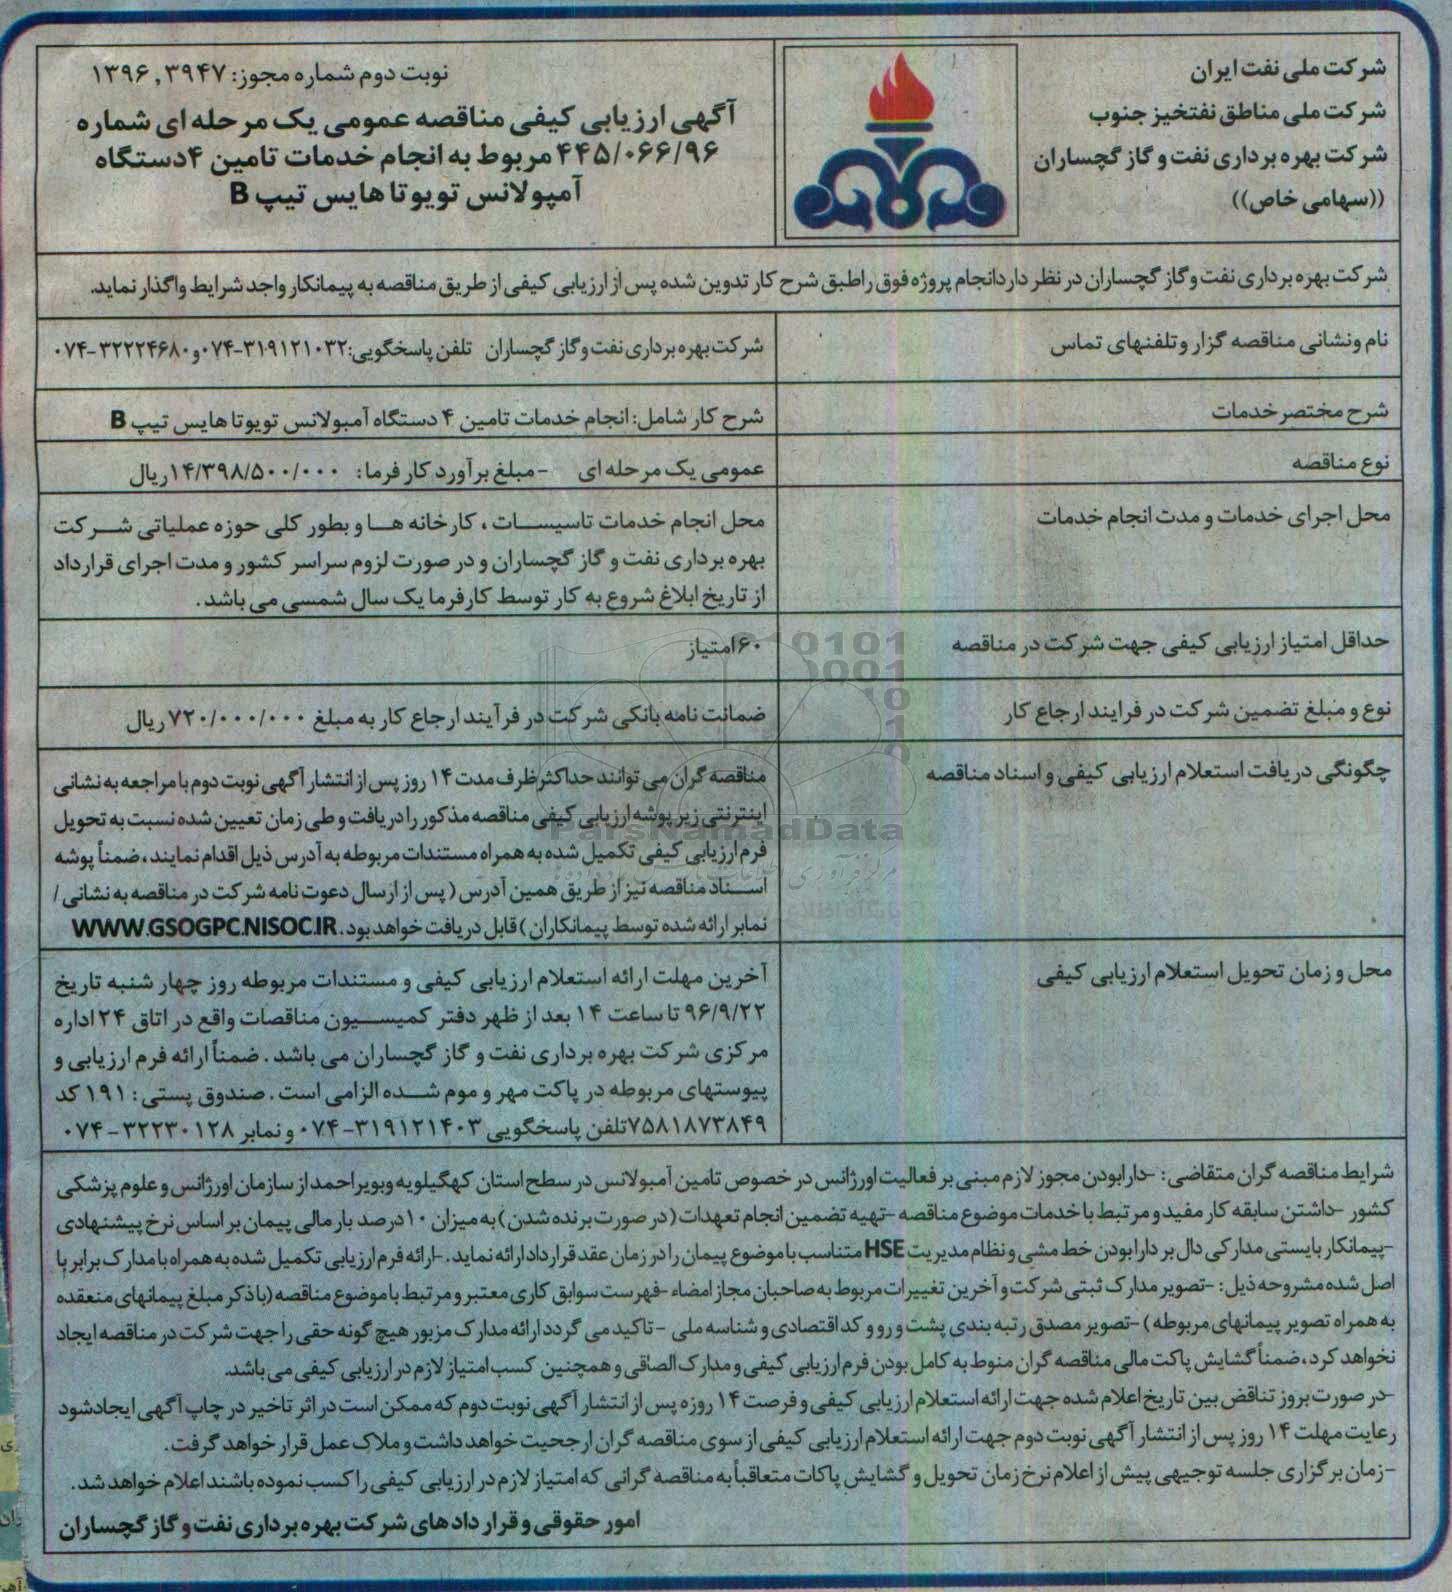 شرکت ملی نفت ایران
شرکت ملی مناطق نفتخیز جنوب
شرکت بهره برداری نفت و گاز گچساران
((سهامی خاص))
نوبت دوم شماره مجوز: ۱۳۹۶,۳۹۴۷
آگهی ارزیابی کیفی مناقصه عمومی یک مرحله ای شماره
۴۴۵/۰۶۶/۹۶ مربوط به انجام خدمات تامین ۴ دستگاه
آمپولانس تویوتا هایس تیپ B
شرکت بهره برداری نفت و گاز گچساران در نظر دارد انجام پروژه فوق را طبق شرح کار تدوین شده پس از ارزیابی کیفی از طریق مناقصه به پیمانکار واجد شرایط واگذار نماید.
نام ونشانی مناقصه گزار وتلفنهای تماس
شرکت بهره برداری نفت و گاز گچساران تلفن پاسخگویی: ۳۱۹۱۲۱۰۳۲-۰۷۴ و ۳۲۲۲۴۶۸۰-۰۷۴
شرح مختصر خدمات
شرح کار شامل: انجام خدمات تامین ۴ دستگاه آمبولانس تویوتا هایس تیپ B
نوع مناقصه
عمومی یک مرحله ای -مبلغ برآورد کار فرما: ۱۴/۳۹۸/۵۰۰/۰۰۰ ریال
محل اجرای خدمات و مدت انجام خدمات
محل انجام خدمات تاسیسات ، کارخانه ها و بطور کلی حوزه عملیاتی شرکت
بهره برداری نفت و گاز گچساران و در صورت لزوم سراسر کشور و مدت اجرای قرارداد
از تاریخ ابلاغ شروع به کار توسط کارفرما یک سال شمسی می باشد .
حداقل امتیاز ارزیابی کیفی جهت شرکت در مناقصه
۶۰ امتیاز
نوع و مبلغ تضمین شرکت در فرایند ارجاع کار
ضمانت نامه بانکی شرکت در فرآیند ارجاع کار به مبلغ ۷۲۰/۰۰۰/۰۰۰ ریال
چگونگی دریافت استعلام ارزیابی کیفی و اسناد مناقصه
مناقصه گران می توانند حداکثر ظرف مدت ۱۴ روز پس از انتشار آگهی نوبت دوم با مراجعه به نشانی
اینترنتی زیر پوشه ارزیابی کیفی مناقصه مذکور را دریافت و طی زمان تعیین شده نسبت به تحویل
فرم ارزیابی کیفی تکمیل شده به همراه مستندات مربوطه به آدرس ذیل اقدام نمایند ، ضمناً پوشه
اسناد مناقصه نیز از طریق همین آدرس ( پس از ارسال دعوت نامه شرکت در مناقصه به نشانی /
نمابر ارائه شده توسط پیمانکاران ) قابل دریافت خواهد بود . WWW.GSOGPC.NISOC.IR
محل و زمان تحویل استعلام ارزیابی کیفی
آخرین مهلت ارائه استعلام ارزیابی کیفی و مستندات مربوطه روز چهار شنبه تاریخ
۹۶/۹/۲۲ تا ساعت ۱۴ بعد از ظهر دفتر کمیسیون مناقصات واقع در اتاق ۲۴ اداره
مرکزی شرکت بهره برداری نفت و گاز گچساران می باشد . ضمناً ارائه فرم ارزیابی و
پیوستهای مربوطه در پاکت مهر و موم شده الزامی است . صندوق پستی : ۱۹۱ کد
۷۵۸۱۸۷۳۸۴۹ تلفن پاسخگویی ۳۱۹۱۲۱۴۰۳-۰۷۴ و نمابر ۳۲۲۳۰۱۲۸-۰۷۴
شرایط مناقصه گران متقاضی: -دارابودن مجوز لازم مبنی بر فعالیت اورژانس در خصوص تامین آمبولانس در سطح استان کهگیلویه وبویر احمد از سازمان اورژانس و علوم پزشکی
کشور -داشتن سابقه کار مفید و مرتبط با خدمات موضوع مناقصه -تهیه تضمین انجام تعهدات ( در صورت برنده شدن ) به میزان ۱۰ درصد بار مالی پیمان بر اساس نرخ پیشنهادی
-پیمانکار بایستی مدارکی دال بر دارا بودن خط مشی و نظام مدیریت HSE متناسب با موضوع پیمان را در زمان عقد قرارداد ارائه نماید . -ارائه فرم ارزیابی تکمیل شده به همراه با مدارک برابر با
اصل شده مشروحه ذیل: -تصویر مدارک ثبتی شرکت و آخرین تغییرات مربوط به صاحبان مجاز امضاء -فهرست سوابق کاری معتبر و مرتبط با موضوع مناقصه (با ذکر مبلغ پیمانهای منعقده
به همراه تصویر پیمانهای مربوطه ) -تصویر مصدق رتبه بندی پشت و رو و کد اقتصادی و شناسه ملی -تاکید می گردد ارائه مدارک مزبور هیچ گونه حقی را جهت شرکت در مناقصه ایجاد
نخواهد کرد ، ضمناً گشایش پاکت مالی مناقصه گران منوط به کامل بودن فرم ارزیابی کیفی و مدارک الصاقی و همچنین کسب امتیاز لازم در ارزیابی کیفی می باشد.
-در صورت بروز تناقض بین تاریخ اعلام شده جهت ارائه استعلام ارزیابی کیفی و فرصت ۱۴ روزه پس از انتشار آگهی نوبت دوم که ممکن است در اثر تاخیر در چاپ آگهی ایجاد شود
رعایت مهلت ۱۴ روز پس از انتشار آگهی نوبت دوم جهت ارائه استعلام ارزیابی کیفی از سوی مناقصه گران ارجحیت خواهد داشت و ملاک عمل قرار خواهد گرفت .
-زمان برگزاری جلسه توجیهی پیش از اعلام نرخ زمان تحویل و گشایش پاکات متعاقباً به مناقصه گرانی که امتیاز لازم در ارزیابی کیفی را کسب نموده باشند اعلام خواهد شد .
امور حقوقی و قرار دادهای شرکت بهره برداری نفت و گاز گچساران
ParsNamadData